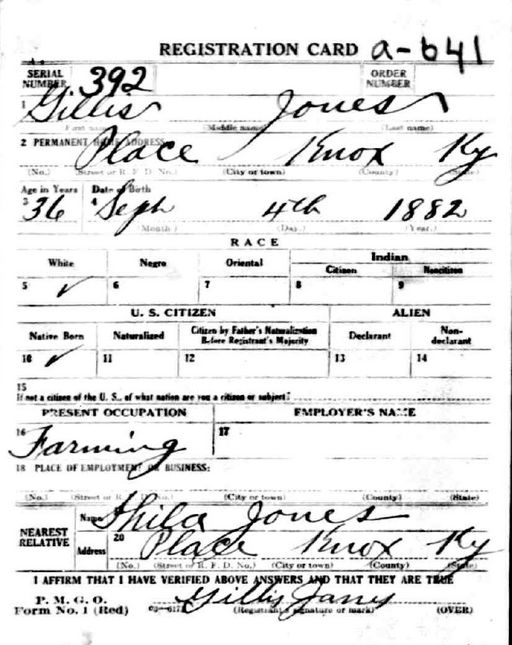 REGISTRATION CARD a-641
SERIAL NUMBER 392 ORDER NUMBER
1 Gillis Jones
First name (Middle name) (Last name)
2 PERMANENT HOME ADDRESS:
Place Knox Ky
(No.) (Street or R. F. D. No.) (City or town) (County) (State)
Age in Years Date of Birth
3 36 4 Seph 4th 1882
(Month.) (Day.) (Year.)
RACE
White Negro Oriental Indian
Citizen Noncitizen
5 ✓ 6 7 8 9
U. S. CITIZEN ALIEN
Native Born Naturalized Citizen by Father's Naturalization Before Registrant's Majority Declarant Non-declarant
10 ✓ 11 12 13 14
15
If not a citizen of the U. S., of what nation are you a citizen or subject?
PRESENT OCCUPATION EMPLOYER'S NAME
16 Farming 17
18 PLACE OF EMPLOYMENT OR BUSINESS:
(No.) (Street or R. F. D. No.) (City or town) (County) (State)
NEAREST RELATIVE Name Shila Jones
Address 20 Place Knox Ky
(No.) (Street or R. F. D. No.) (City or town) (County) (State)
I AFFIRM THAT I HAVE VERIFIED ABOVE ANSWERS AND THAT THEY ARE TRUE
P. M. G. O.
Form No. 1 (Red) Gillis Jones
(Registrant's signature or mark) (OVER)